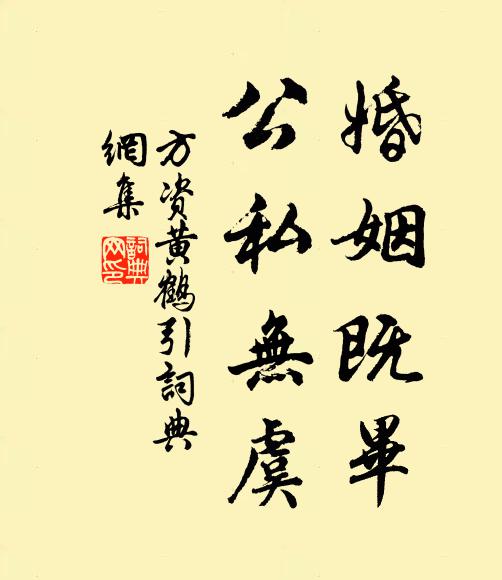 婚姻既畢
公私無虞
方資黄鶴引詞典
網集
詞典
网印